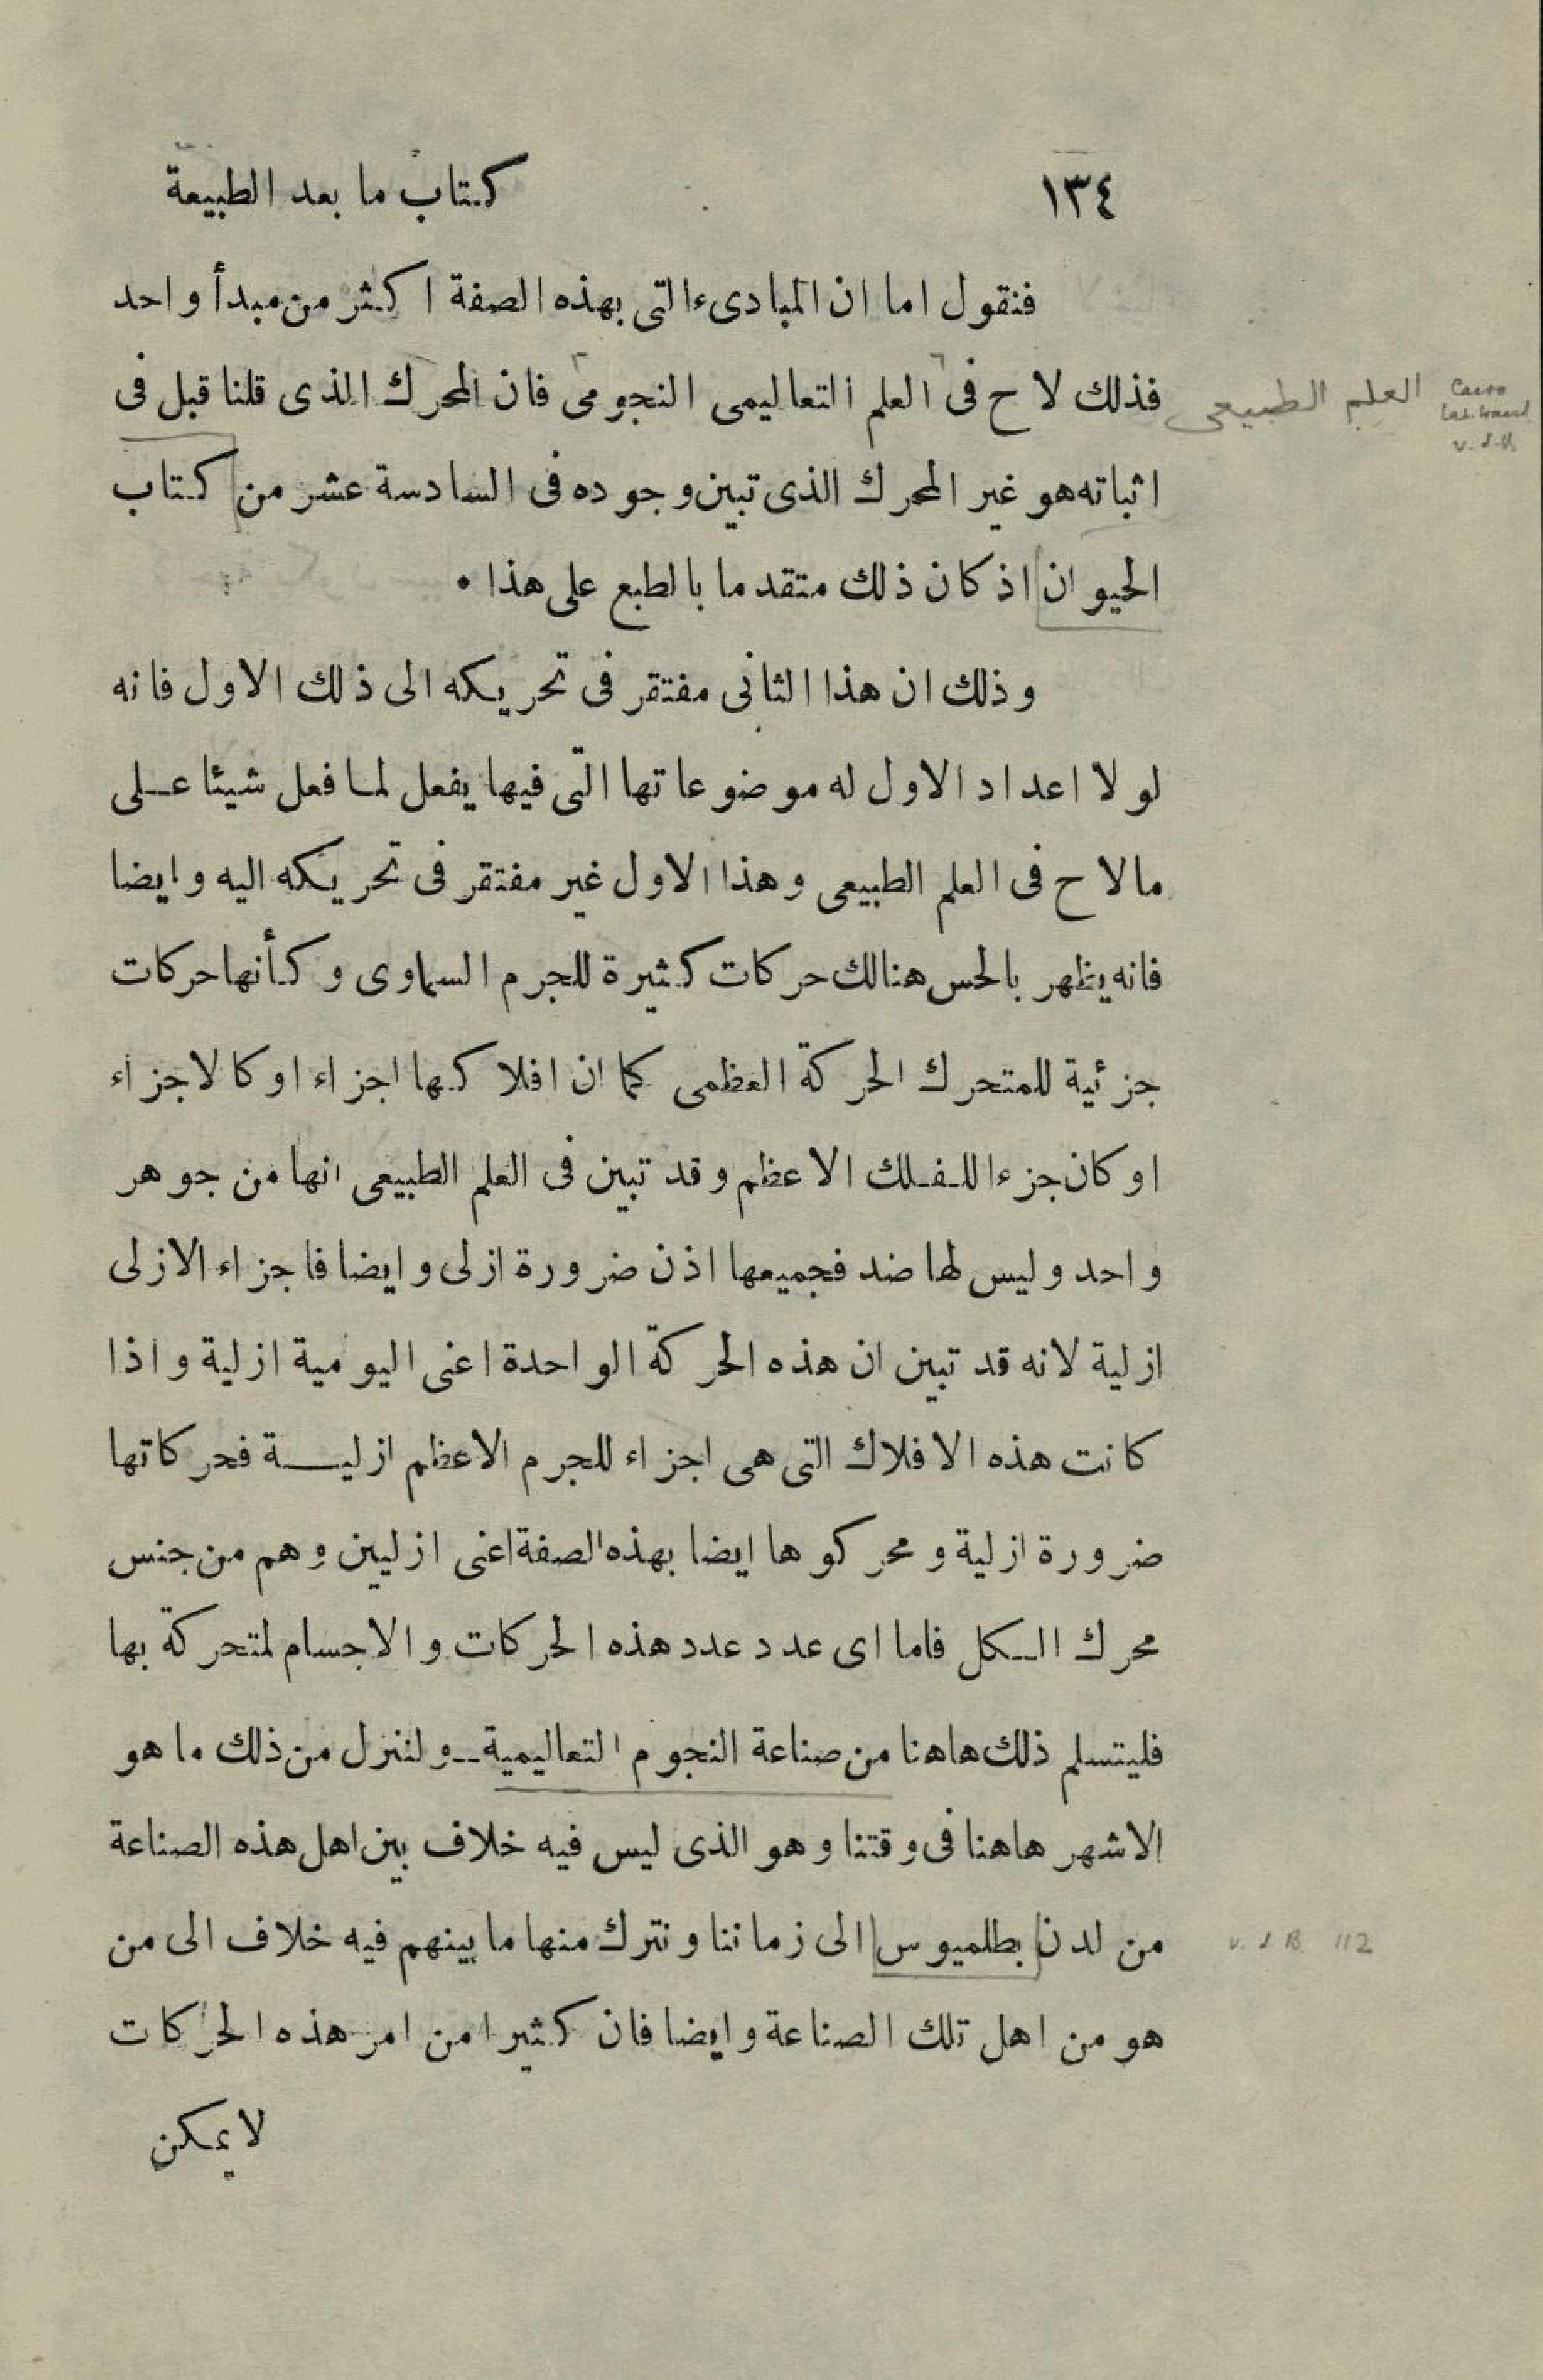 ١٣٤ كتاب ما بعد الطبيعة
فنقول اما ان المبادىء التى بهذه الصفة اكثر من مبدأ واحد
فذلك لاح فى العلم التعاليمى النجومى فان المحرك الذى قلنا قبل فى
العلم الطبيعى
Cairo
v. d. B.
اثباته هو غير المحرك الذى تبين وجوده فى السادسة عشر من كتاب
الحيوان اذ كان ذلك متقدما بالطبع على هذا ٠
وذلك ان هذا الثانى مفتقر فى تحريكه الى ذلك الاول فانه
لولا اعداد الاول له موضوعاتها التى فيها يفعل لما فعل شيئا على
مالاح فى العلم الطبيعى وهذا الاول غير مفتقر فى تحريكه اليه وايضا
فانه يظهر بالحس هنالك حركات كثيرة للجرم السماوى وكأنها حركات
جزئية للمتحرك الحركة العظمى كما ان افلاكها اجزاء او كالاجزاء
او كان جزءا للفلك الاعظم وقد تبين فى العلم الطبيعى انها من جوهر
واحد وليس لها ضد فجميعها اذن ضرورة ازلى وايضا فاجزاء الازلى
ازلية لانه قد تبين ان هذه الحركة الواحدة اعنى اليومية ازلية واذا
كانت هذه الافلاك التى هى اجزاء للجرم الاعظم ازلية فحركاتها
ضرورة ازلية ومحركوها ايضا بهذه الصفة اعنى ازليين وهم من جنس
محرك الكل فاما اى عدد عدد هذه الحركات والاجسام لمتحركة بها
فليتسلم ذلك هاهنا من صناعة النجوم التعاليمية_ولننزل من ذلك ما هو
الاشهر هاهنا فى وقتنا وهو الذى ليس فيه خلاف بين اهل هذه الصناعة
من لدن بطلميوس الى زماننا ونترك منها ما بينهم فيه خلاف الى من
v. d B. 112
هو من اهل تلك الصناعة وايضا فان كثيرا من امر هذه الحركات
لا يمكن